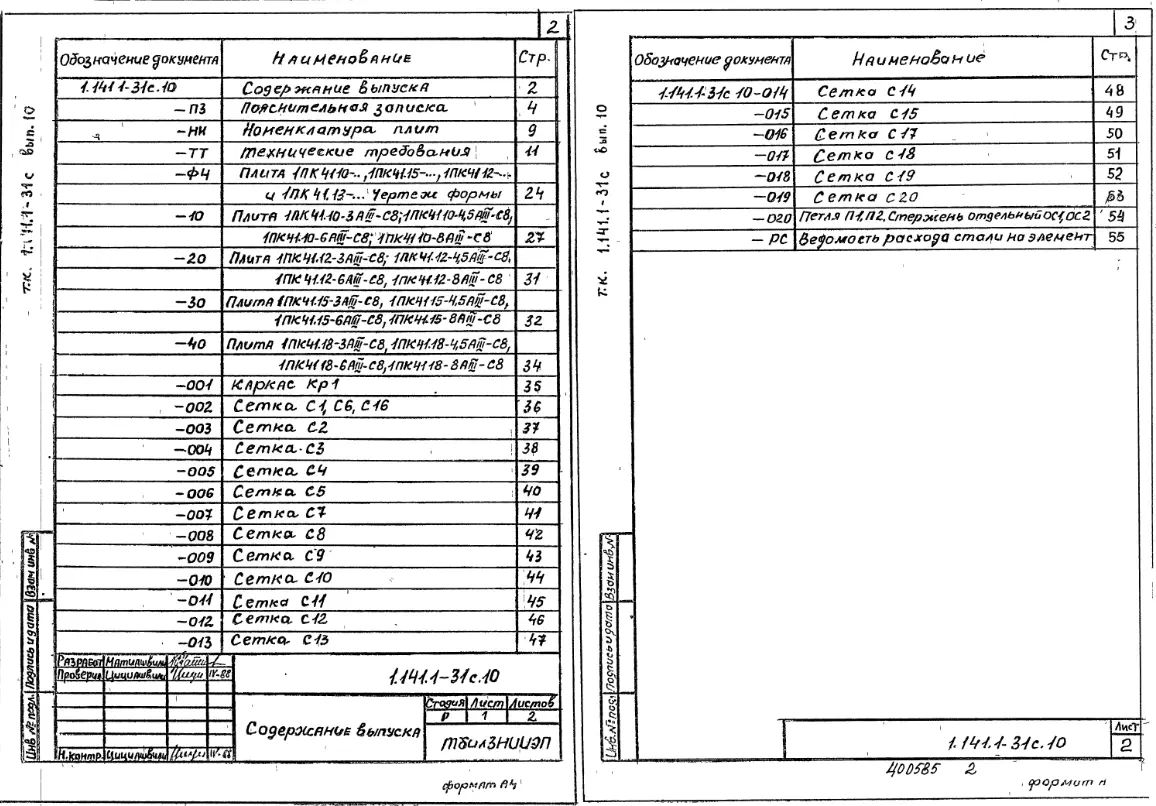 2
Обозначение документа Наименование Стр.
1.141.1-31с.10 Содержание выпуска 2
-ПЗ Пояснительная записка 4
-НИ Номенклатура плит 9
-ТТ Технические требования 11
-ФЧ Плита 1ПК41.10-..,1ПК41.15-...,1ПК41.12-...
и 1ПК 41.13-... Чертеж формы 24
-10 Плита 1ПК41.10-3АIII-С8; 1ПК41.10-4,5АIII-С8,
1ПК41.10-6АIII-С8; 1ПК41.10-8АIII-С8 27
-20 Плита 1ПК41.12-3АIII-С8; 1ПК41.12-4,5АIII-С8,
1ПК41.12-6АIII-С8, 1ПК41.12-8АIII-С8 31
-30 Плита 1ПК41.15-3АIII-С8, 1ПК41.15-4,5АIII-С8,
1ПК41.15-6АIII-С8, 1ПК41.15-8АIII-С8 32
-40 Плита 1ПК41.18-3АIII-С8, 1ПК41.18-4,5АIII-С8,
1ПК41.18-6АIII-С8, 1ПК41.18-8АIII-С8 34
-001 Каркас Кр1 35
-002 Сетка С1, С6, С16 36
-003 Сетка С2 37
-004 Сетка С3 38
-005 Сетка С4 39
-006 Сетка С5 40
-007 Сетка С7 41
-008 Сетка С8 42
-009 Сетка С9 43
-010 Сетка С10 44
-011 Сетка С11 45
-012 Сетка С12 46
-013 Сетка С13 47
т.к. 1.141.1-31с вып. 10
Инв.№ подл. Подпись и дата Взам инв №
Разработ Матиашвили
Проверил Цицишвили IV-88
Н.контр. Цицишвили IV-88
1.141.1-31с.10
Содержание выпуска
Стадия Лист Листов
Р 1 2
ТбилЗНИИЭП
формат А4
3
Обозначение документа Наименование Стр.
1.141.1-31с.10-014 Сетка С14 48
-015 Сетка С15 49
-016 Сетка С17 50
-017 Сетка С18 51
-018 Сетка С19 52
-019 Сетка С20 53
-020 Петля П1,П2,Стержень отдельный ОС1,ОС2 54
- РС Ведомость расхода стали на элемент 55
т.к. 1.141.1-31с вып. 10
Инв.№ подл. Подпись и дата Взам инв.№
1.141.1-31с.10
Лист
2
400585 2
формат А